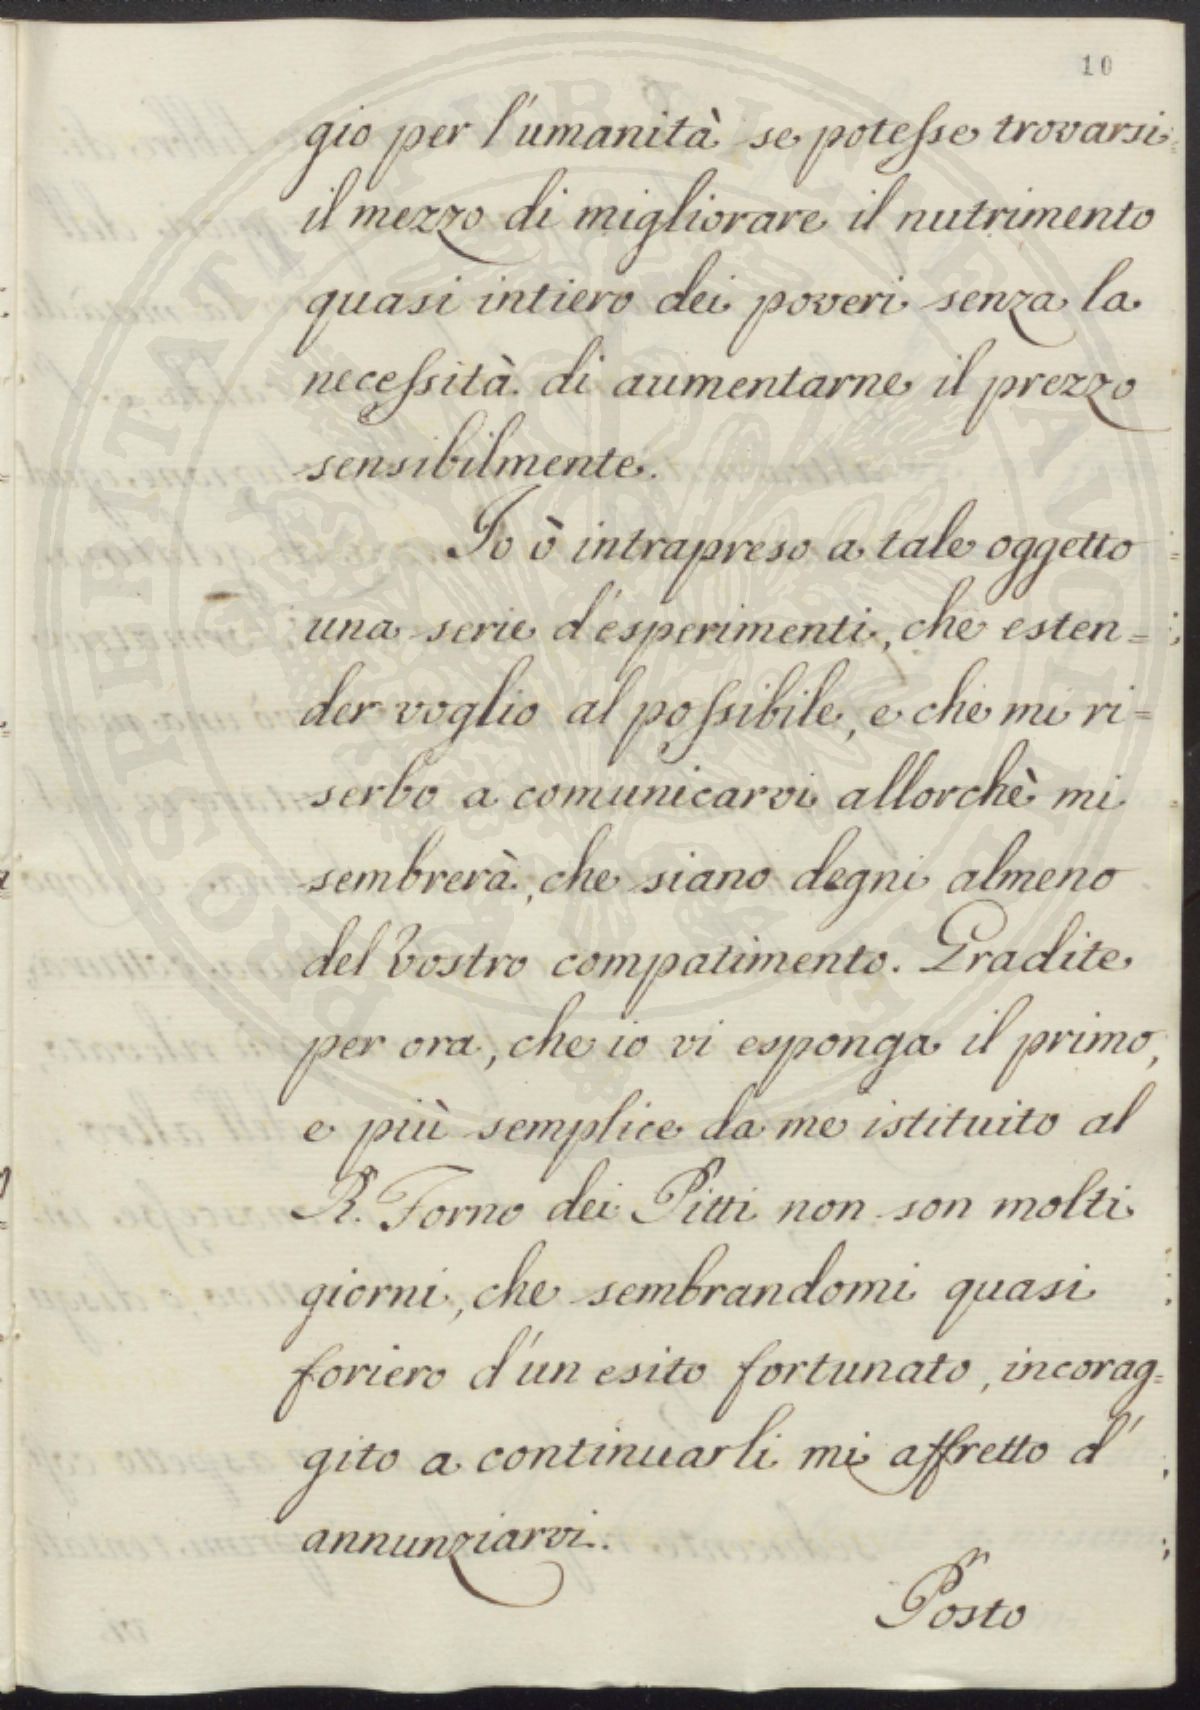 10
gio per l'umanità se potesse trovarsi
il mezzo di migliorare il nutrimento
quasi intiero dei poveri senza la
necessità di aumentarne il prezzo
sensibilmente.
Io ò intrapreso a tale oggetto
una serie d'esperimenti, che esten=
der voglio al possibile, e che mi ri=
serbo a comunicarvi allorchè mi
sembrerà, che siano degni almeno
del Vostro compatimento. Gradite
per ora, che io vi esponga il primo,
e più semplice da me istituito al
R. Forno dei Pitti non son molti
giorni, che sembrandomi quasi
foriero d'un esito fortunato, incorag=
gito a continuarli mi affretto d'
annunziarvi.
Posto
PROSPERITATI PUBLICAE AUGENDAE